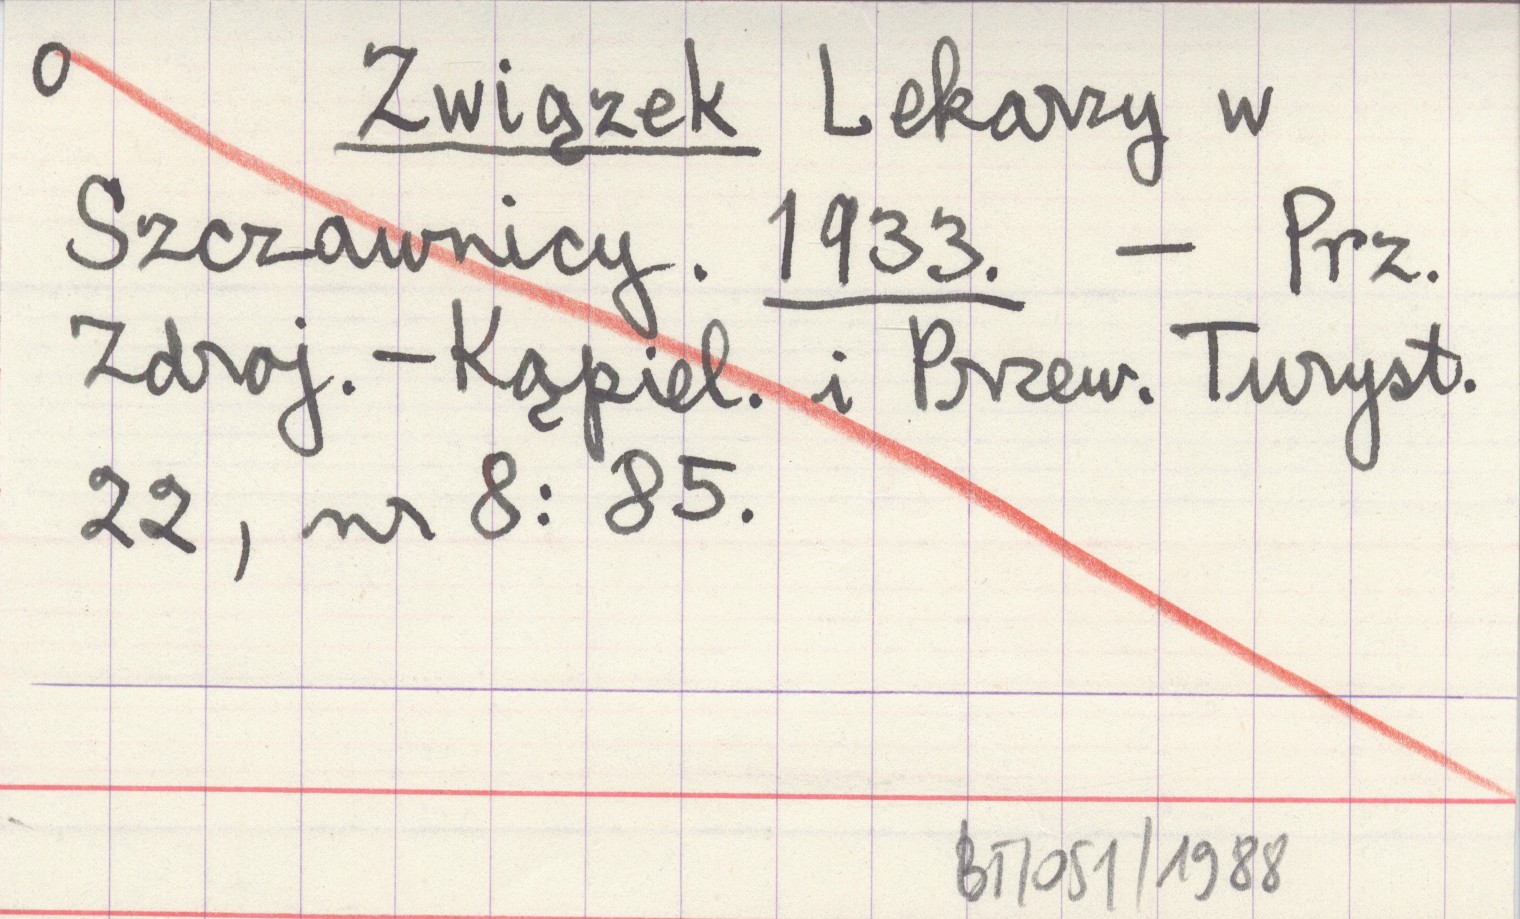 O Związek Lekarzy w
Szczawnicy. 1933. – Prz.
Zdroj.-Kąpiel. i Przew. Turyst.
22, nr 8: 85.
BT/051/1988